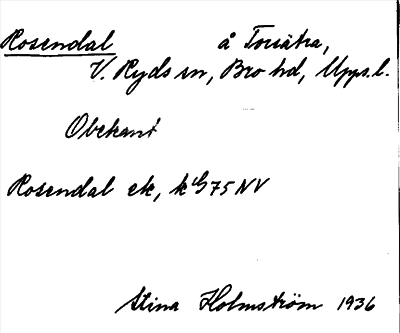 Rosendal å Toresätra,
V. Ryds sn, Bro hd, Upps. l.
Obekant
Rosendal ek, k 75 NV
Stina Holmström 1936